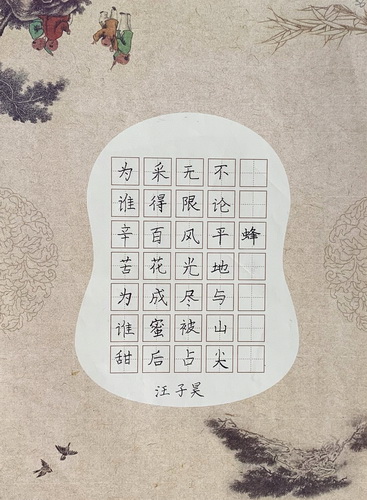 蜂
不论平地与山尖
无限风光尽被占
采得百花成蜜后
为谁辛苦为谁甜
汪子昊